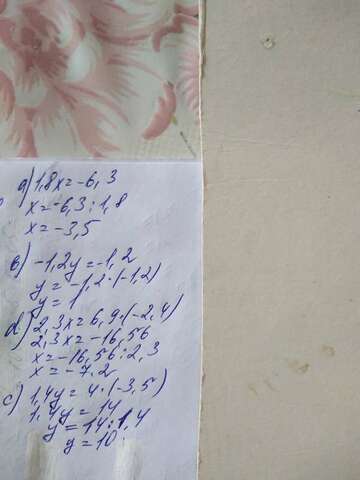 a) 1,8x = -6,3
x = -6,3 : 1,8
x = -3,5
b) -1,2y = -1,2
y = -1,2 · (-1,2)
y = 1
d) 2,3x = 6,9 · (-2,4)
2,3x = -16,56
x = -16,56 : 2,3
x = -7.2
c) 1,4y = 4 · (-3,5)
1,4y = 14
y = 14 : 1,4
y = 10